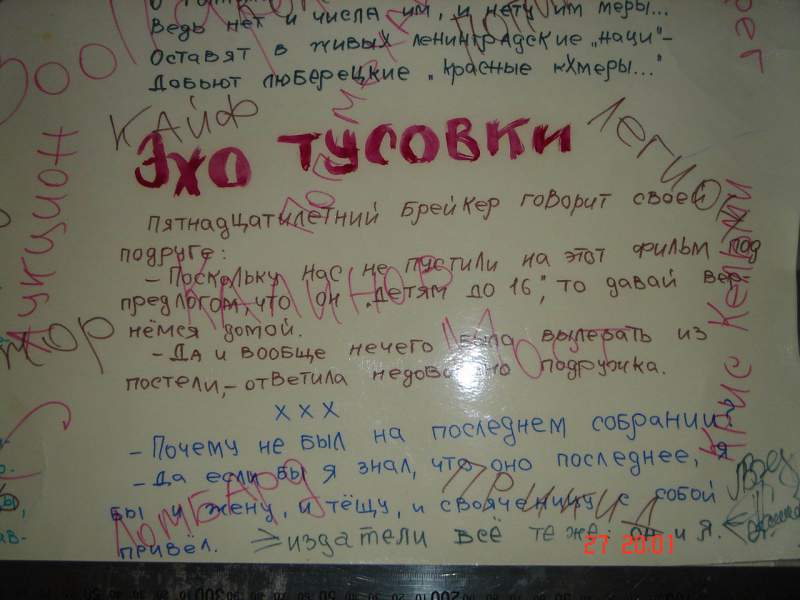 Ведь нет и числа им, и нету им меры...
Оставят в живых ленинградские „наци"-
Добьют люберецкие „красные кхмеры..."
Зоопарк
Аукцион
КАЙФ
ЭХО ТУСОВКИ
ЛЕГИОН
Пятнадцатилетний брейкер говорит своей
подруге:
- Поскольку нас не пустили на этот фильм под
предлогом, что он „детям до 16", то давай вер-
нёмся домой.
- Да и вообще нечего было вылезать из
постели,- ответила недовольно подружка.
КАЛИНОВ
МОСТ
Крис Кельми
х х х
- Почему не был на последнем собрании?
- Да если бы я знал, что оно последнее, я
бы и жену, и тёщу, и свояченицу с собой
привёл.
ЛОМБАРД
ПРИНЦИП
=издатели всё те же: он и я.
27 20:01